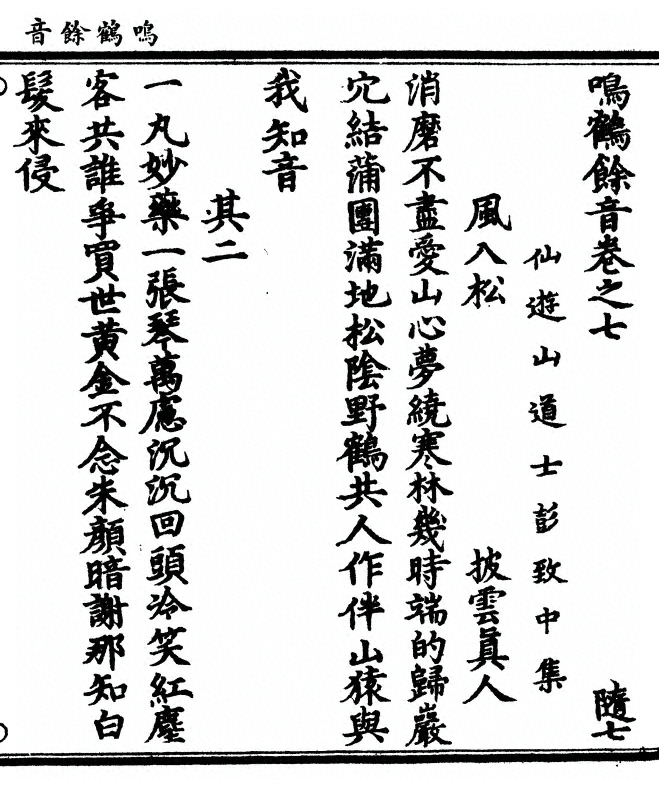 鳴鶴餘音
鳴鶴餘音卷之七
隨七
仙遊山道士彭致中集
風入松
披雲眞人
消磨不盡愛山心夢繞寒林幾時端的歸巖
穴結蒲團滿地松陰野鶴共人作伴山猿與
我知音
其二
一丸妙藥一張琴萬慮沉沉回頭冷笑紅塵
客共誰爭買世黃金不念朱顏暗謝那知白
髮來侵